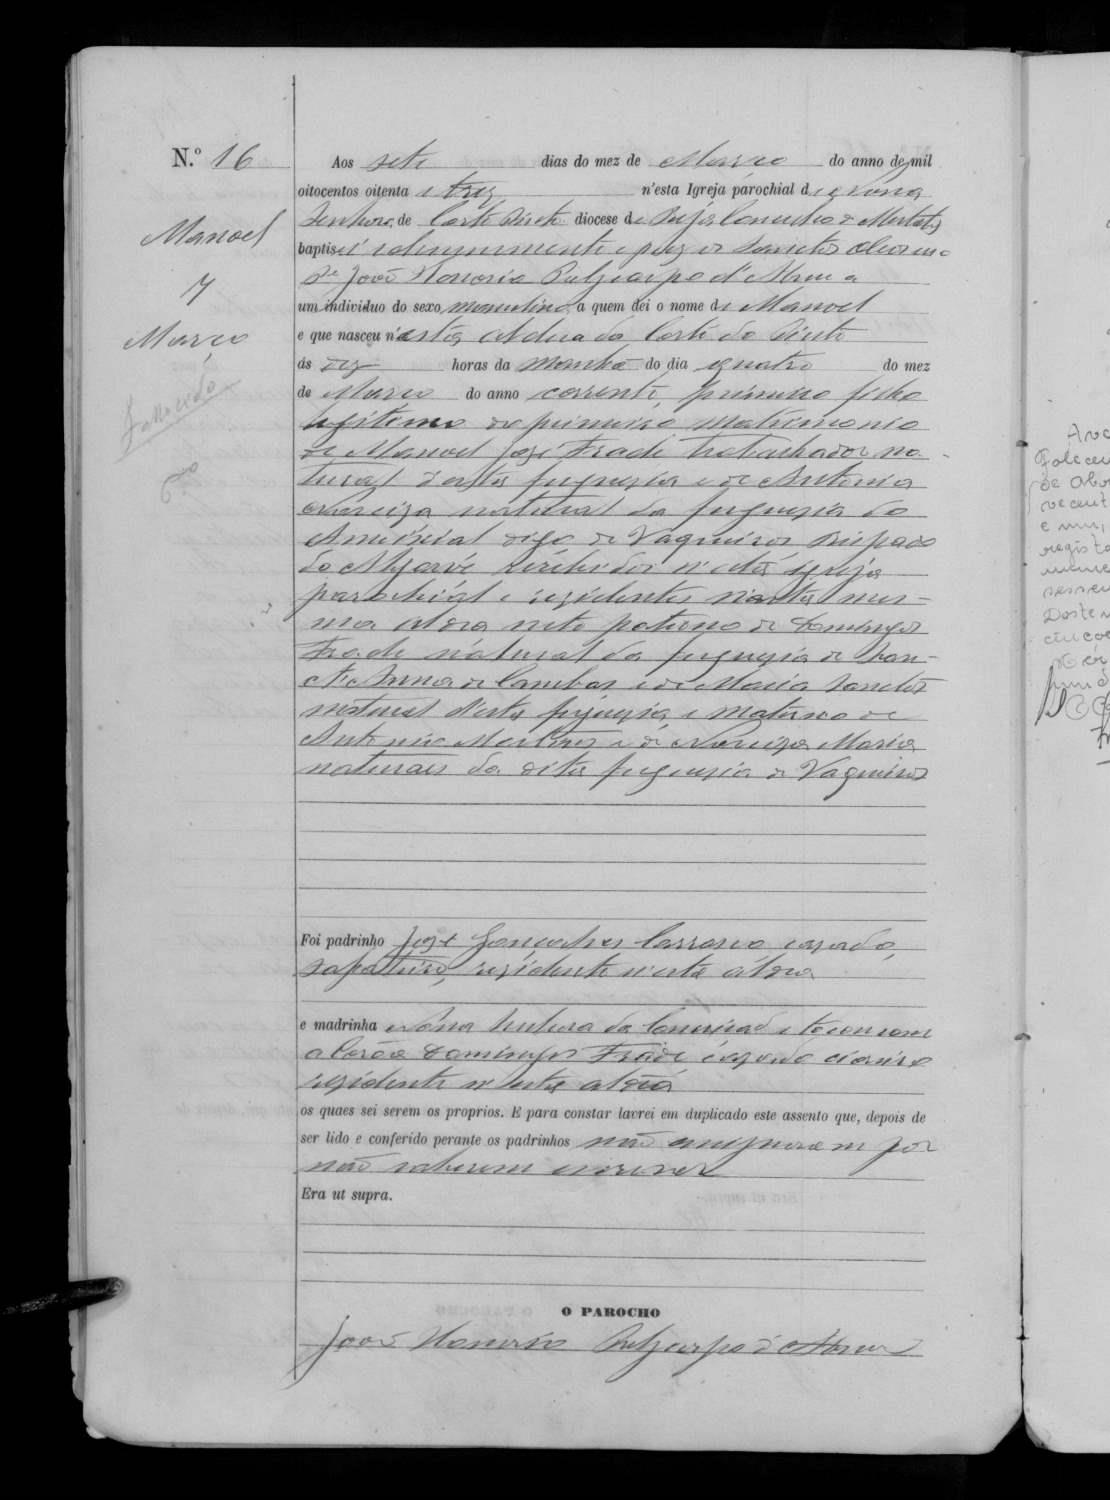 N.º 16
Manoel
7
Março
Fallecido
Aos sete dias do mez de Março do anno de mil
oitocentos oitenta e trez n'esta Igreja parochial de Nossa
Senhora, de Corte Pinto diocese de Beja Concelho de Mertola
baptisei solemnemente e puz os Sanctos Oleos eu
P.e João Honorio Polycarpo d'Abreu a
um individuo do sexo masculino a quem dei o nome de Manoel
e que nasceu n'esta Aldea da Corte do Pinto
ás dez horas da manhã do dia quatro do mez
de Março do anno corrente, primeiro filho
legitimo do primeiro matrimonio
de Manoel José Frade trabalhador na-
tural d'esta freguesia e de Antonia
Narciza natural da freguesia do
Ameixial digo de Vaqueiros Bispado
do Algarve recebidos n'esta Igreja
parochial e residentes n'esta mes-
ma aldea neto paterno de Domingos
Frade natural da freguesia de San-
ct'Anna de Cambas e de Maria Sanctos
natural d'esta freguesia e materno de
Antonio Martins e de Narciza Maria
naturaes da dita freguesia de Vaqueiros
Foi padrinho José Gonçalves Carrasco, casado,
sapateiro, residente n'esta aldea
e madrinha Nossa Senhora da Conceição e tocou com
a Corôa Domingos Frade casado
residente n'esta aldea
os quaes sei serem os proprios. E para constar lavrei em duplicado este assento que, depois de
ser lido e conferido perante os padrinhos não assignaram por
não saberem escrever
Era ut supra.
O PAROCHO
João Honorio Polycarpo d'Abreu